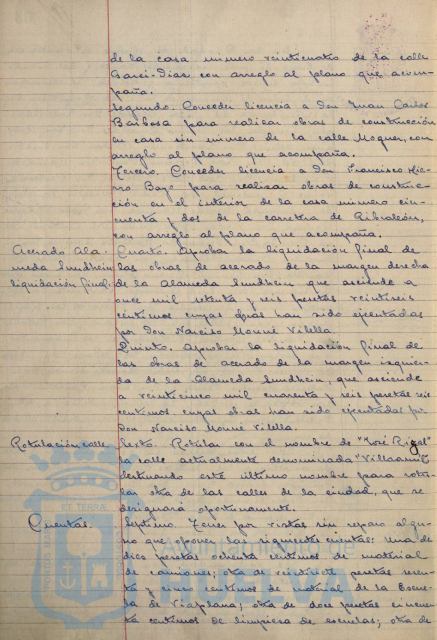 de la casa número veinticuatro de la calle
Garci-Diaz con arreglo al plano que acom-
paña.
Segundo. Conceder licencia a Don Juan Carlos
Barbosa para realizar obras de construcción
en casa sin número de la calle Moguer, con
arreglo al plano que acompaña.
Tercero. Conceder licencia a Don Francisco Hie-
rro Bayo para realizar obras de construc-
ción en el interior de la casa número cin-
cuenta y dos de la carretera de Gibraleón,
con arreglo al plano que acompaña.
Acerado Ala-
meda Sundhein
liquidación final.
Cuarto. Aprobar la liquidación final de
las obras de acerado de la margen derecha
de la Alameda Sundhein que asciende a
once mil setenta y seis pesetas veintiseis
céntimos cuyas obras han sido ejecutadas
por Don Narciso Monné Vilella.
Quinto. Aprobar la liquidación final de
las obras de acerado de la margen izquier-
da de la Alameda Sundhein, que asciende
a veinticinco mil cuarenta y seis pesetas
céntimos, cuyas obras han sido ejecutadas por
Don Narciso Monné Vilella.
Rotulación calle
Sexto. Rotular con el nombre de "José Rizal"
la calle actualmente denominada "Villaamil"
destinando este último nombre para rotu-
lar otra de las calles de la ciudad, que se
designará oportunamente.
Cuentas.
Septimo. Tener por vistas sin reparo algu-
no que oponer las siguientes cuentas: Una de
diez pesetas ochenta centimos de material
de camiones; otra de veintisiete pesetas seten-
ta y cinco centimos de material de la Escue-
la de Viaplana; otra de doce pesetas cincuen-
ta centimos de limpieza de escuelas; otra de